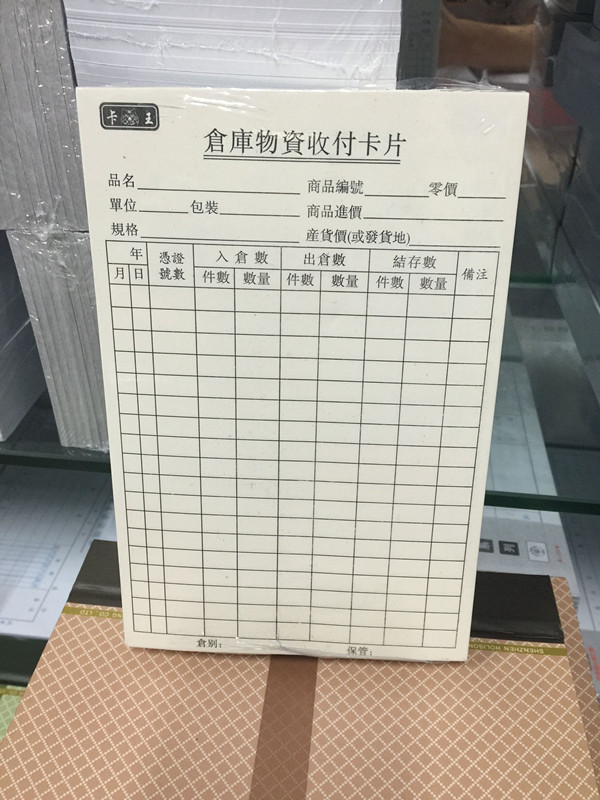 卡 王
倉庫物資收付卡片
品名 商品編號 零價
單位 包裝 商品進價
規格 産貨價(或發貨地)
年 憑證號數 入倉數 出倉數 結存數 備注
月 日 件數 數量 件數 數量 件數 數量
倉別: 保管:
列
NG CO., LTD
SHENZHEN HOLISON